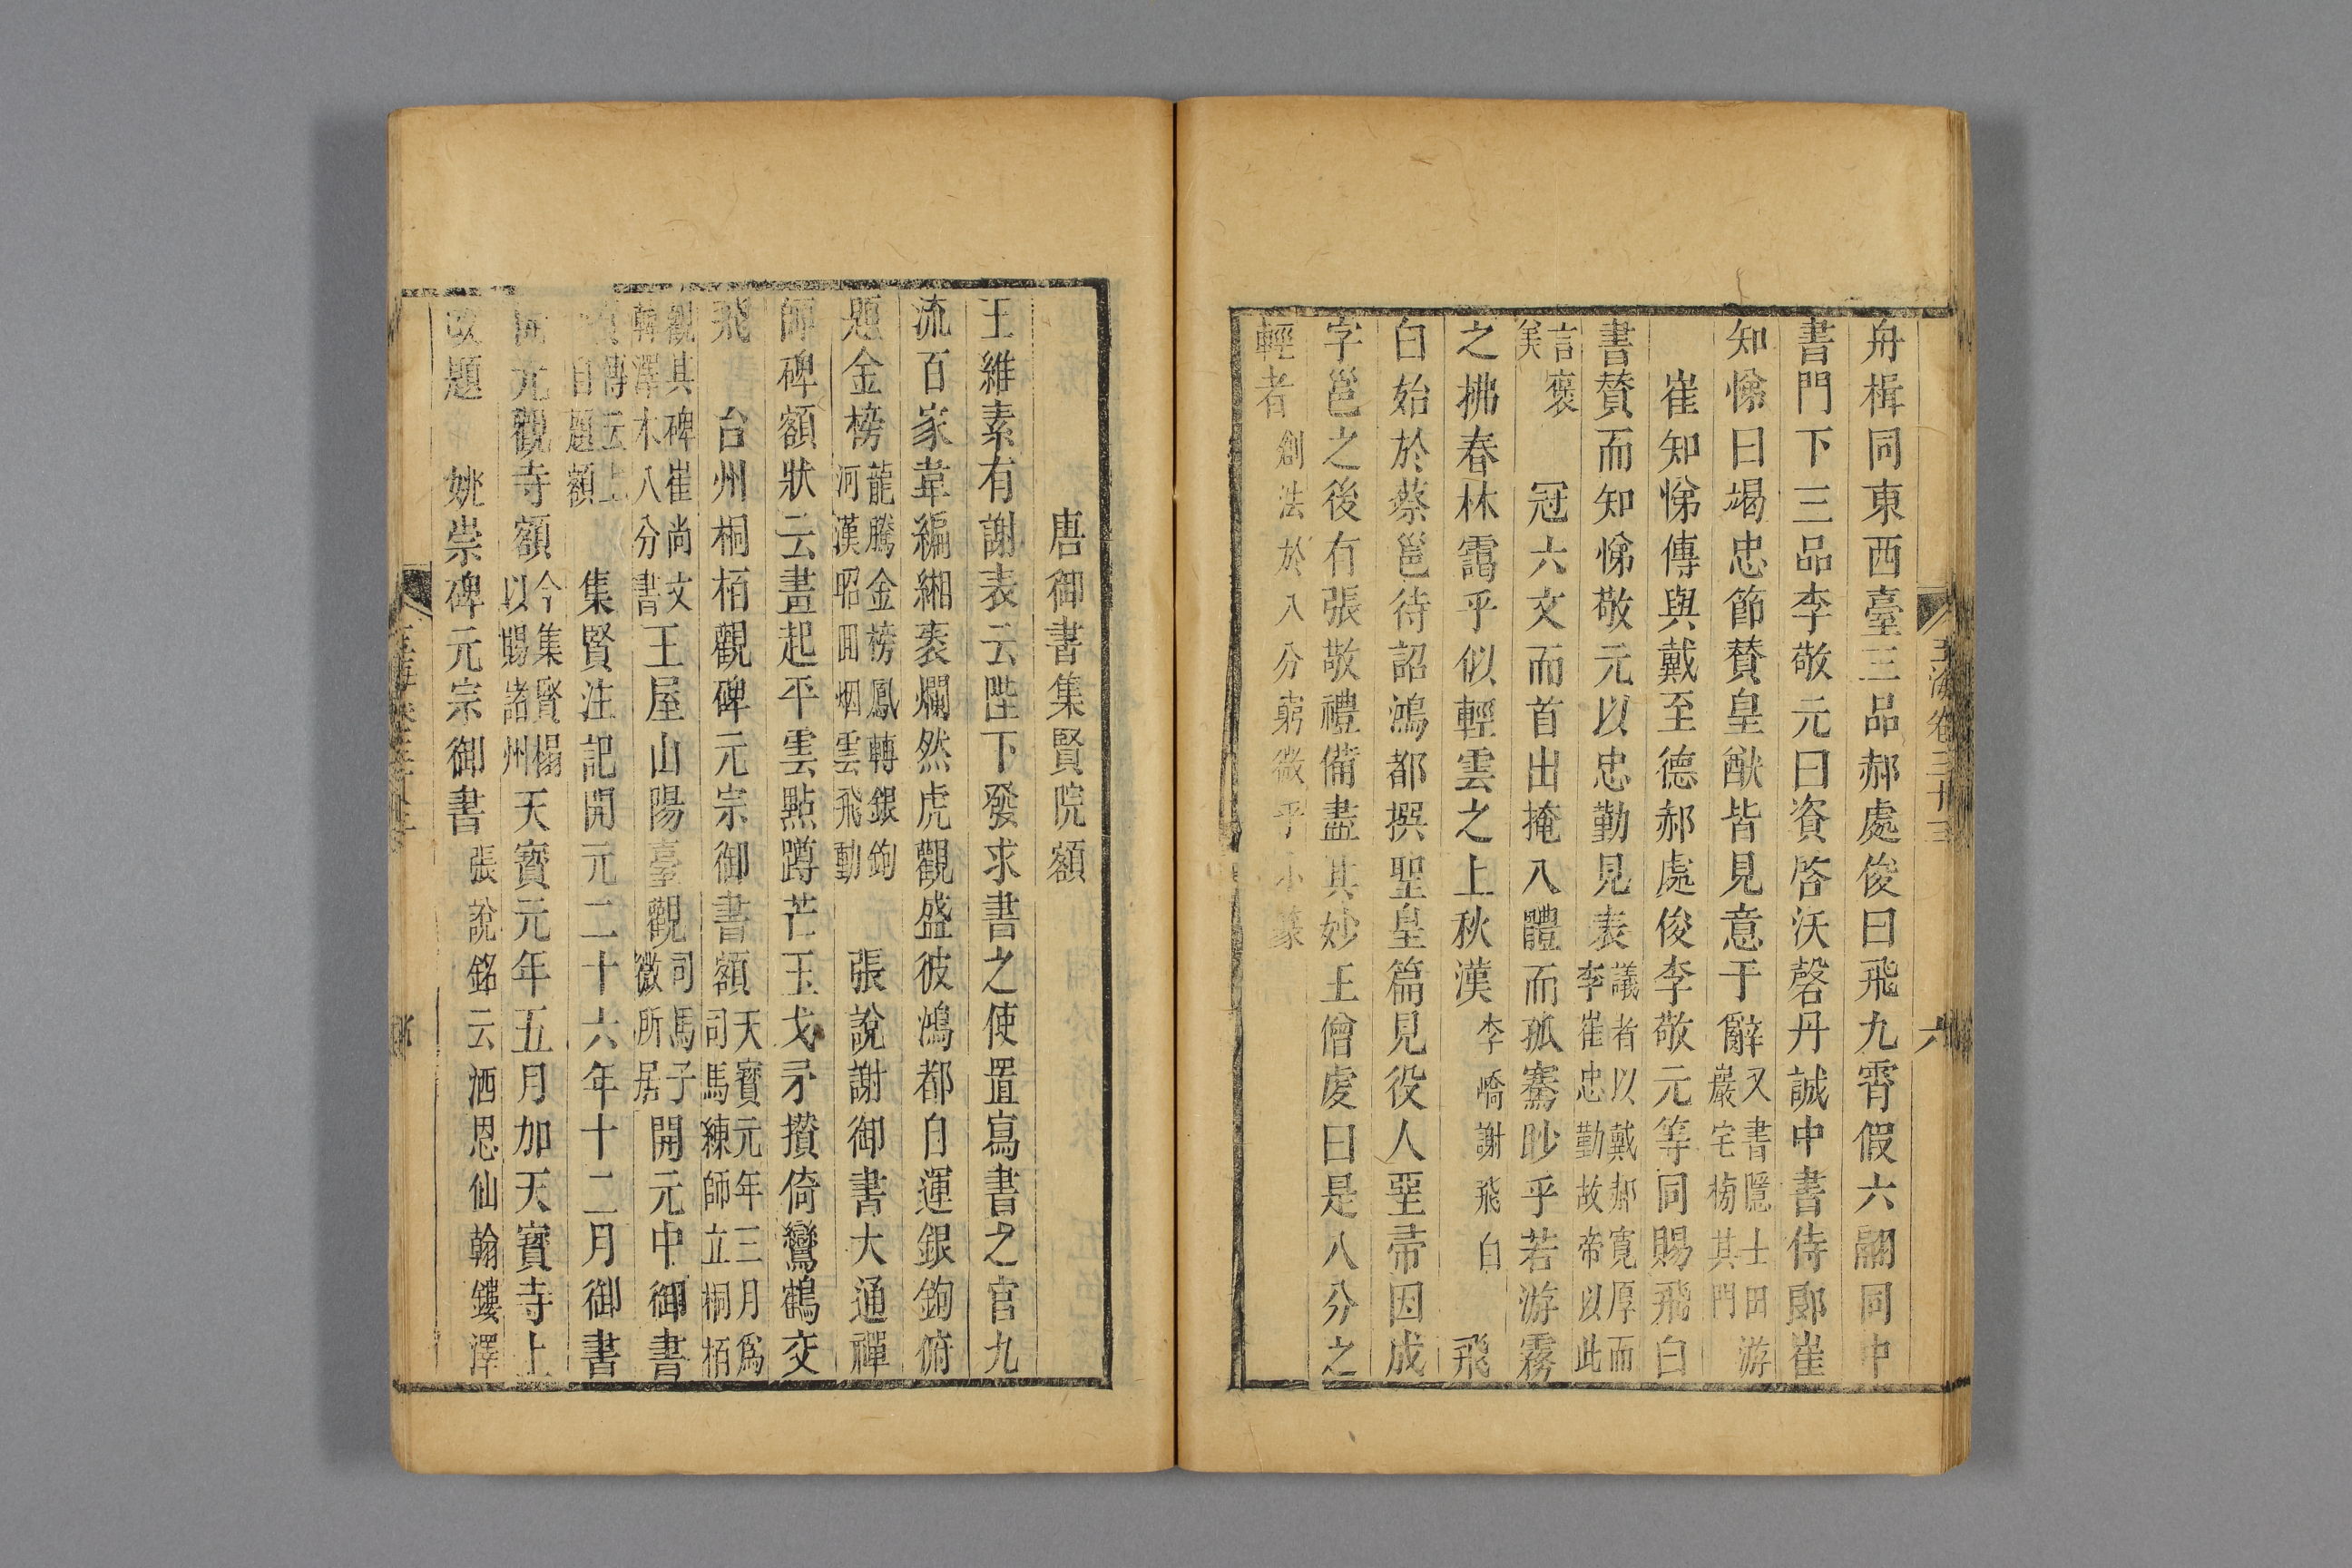 玉海卷三十三
六
舟楫同東西臺三品郝處俊曰飛九霄假六翮同中
書門下三品李敬元曰資啓沃罄丹誠中書侍郎崔
知悌曰竭忠節贊皇猷皆見意于辭又書隱士田游
巖宅榜其門
崔知悌傳與戴至德郝處俊李敬元等同賜飛白
書贊而知悌敬元以忠勤見表議者以戴郝寬厚而
李崔忠勤故帝以此
言褒
美
冠六文而首出掩八體而孤騫眇乎若游霧
之拂春林靄乎似輕雲之上秋漢李嶠謝飛白
飛
白始於蔡邕待詔鴻都撰聖皇篇見役人堊帚因成
字邕之後有張敬禮備盡其妙王僧虔曰是八分之
輕者創法於八分窮微乎小篆
唐御書集賢院額
王維素有謝表云陛下發求書之使置寫書之官九
流百家韋編緗袠爛然虎觀盛彼鴻都自運銀鉤俯
題金榜龍騰金榜鳳轉銀鉤
河漢昭回烟雲飛動
張說謝御書大通禪
師碑額狀云畫起平雲點蹲芒玉戈矛攢倚鸞鶴交
飛
台州桐栢觀碑元宗御書額天寶元年三月爲
司馬練師立桐栢
觀其碑崔尚文
韓澤木八分書
王屋山陽臺觀司馬子
微所居
開元中御書
傳云上
自題額
集賢注記開元二十六年十二月御書
開元觀寺額今集賢榻
以賜諸州
天寶元年五月加天寶寺上
改題
姚崇碑元宗御書張說銘云洒恩仙翰鏤澤